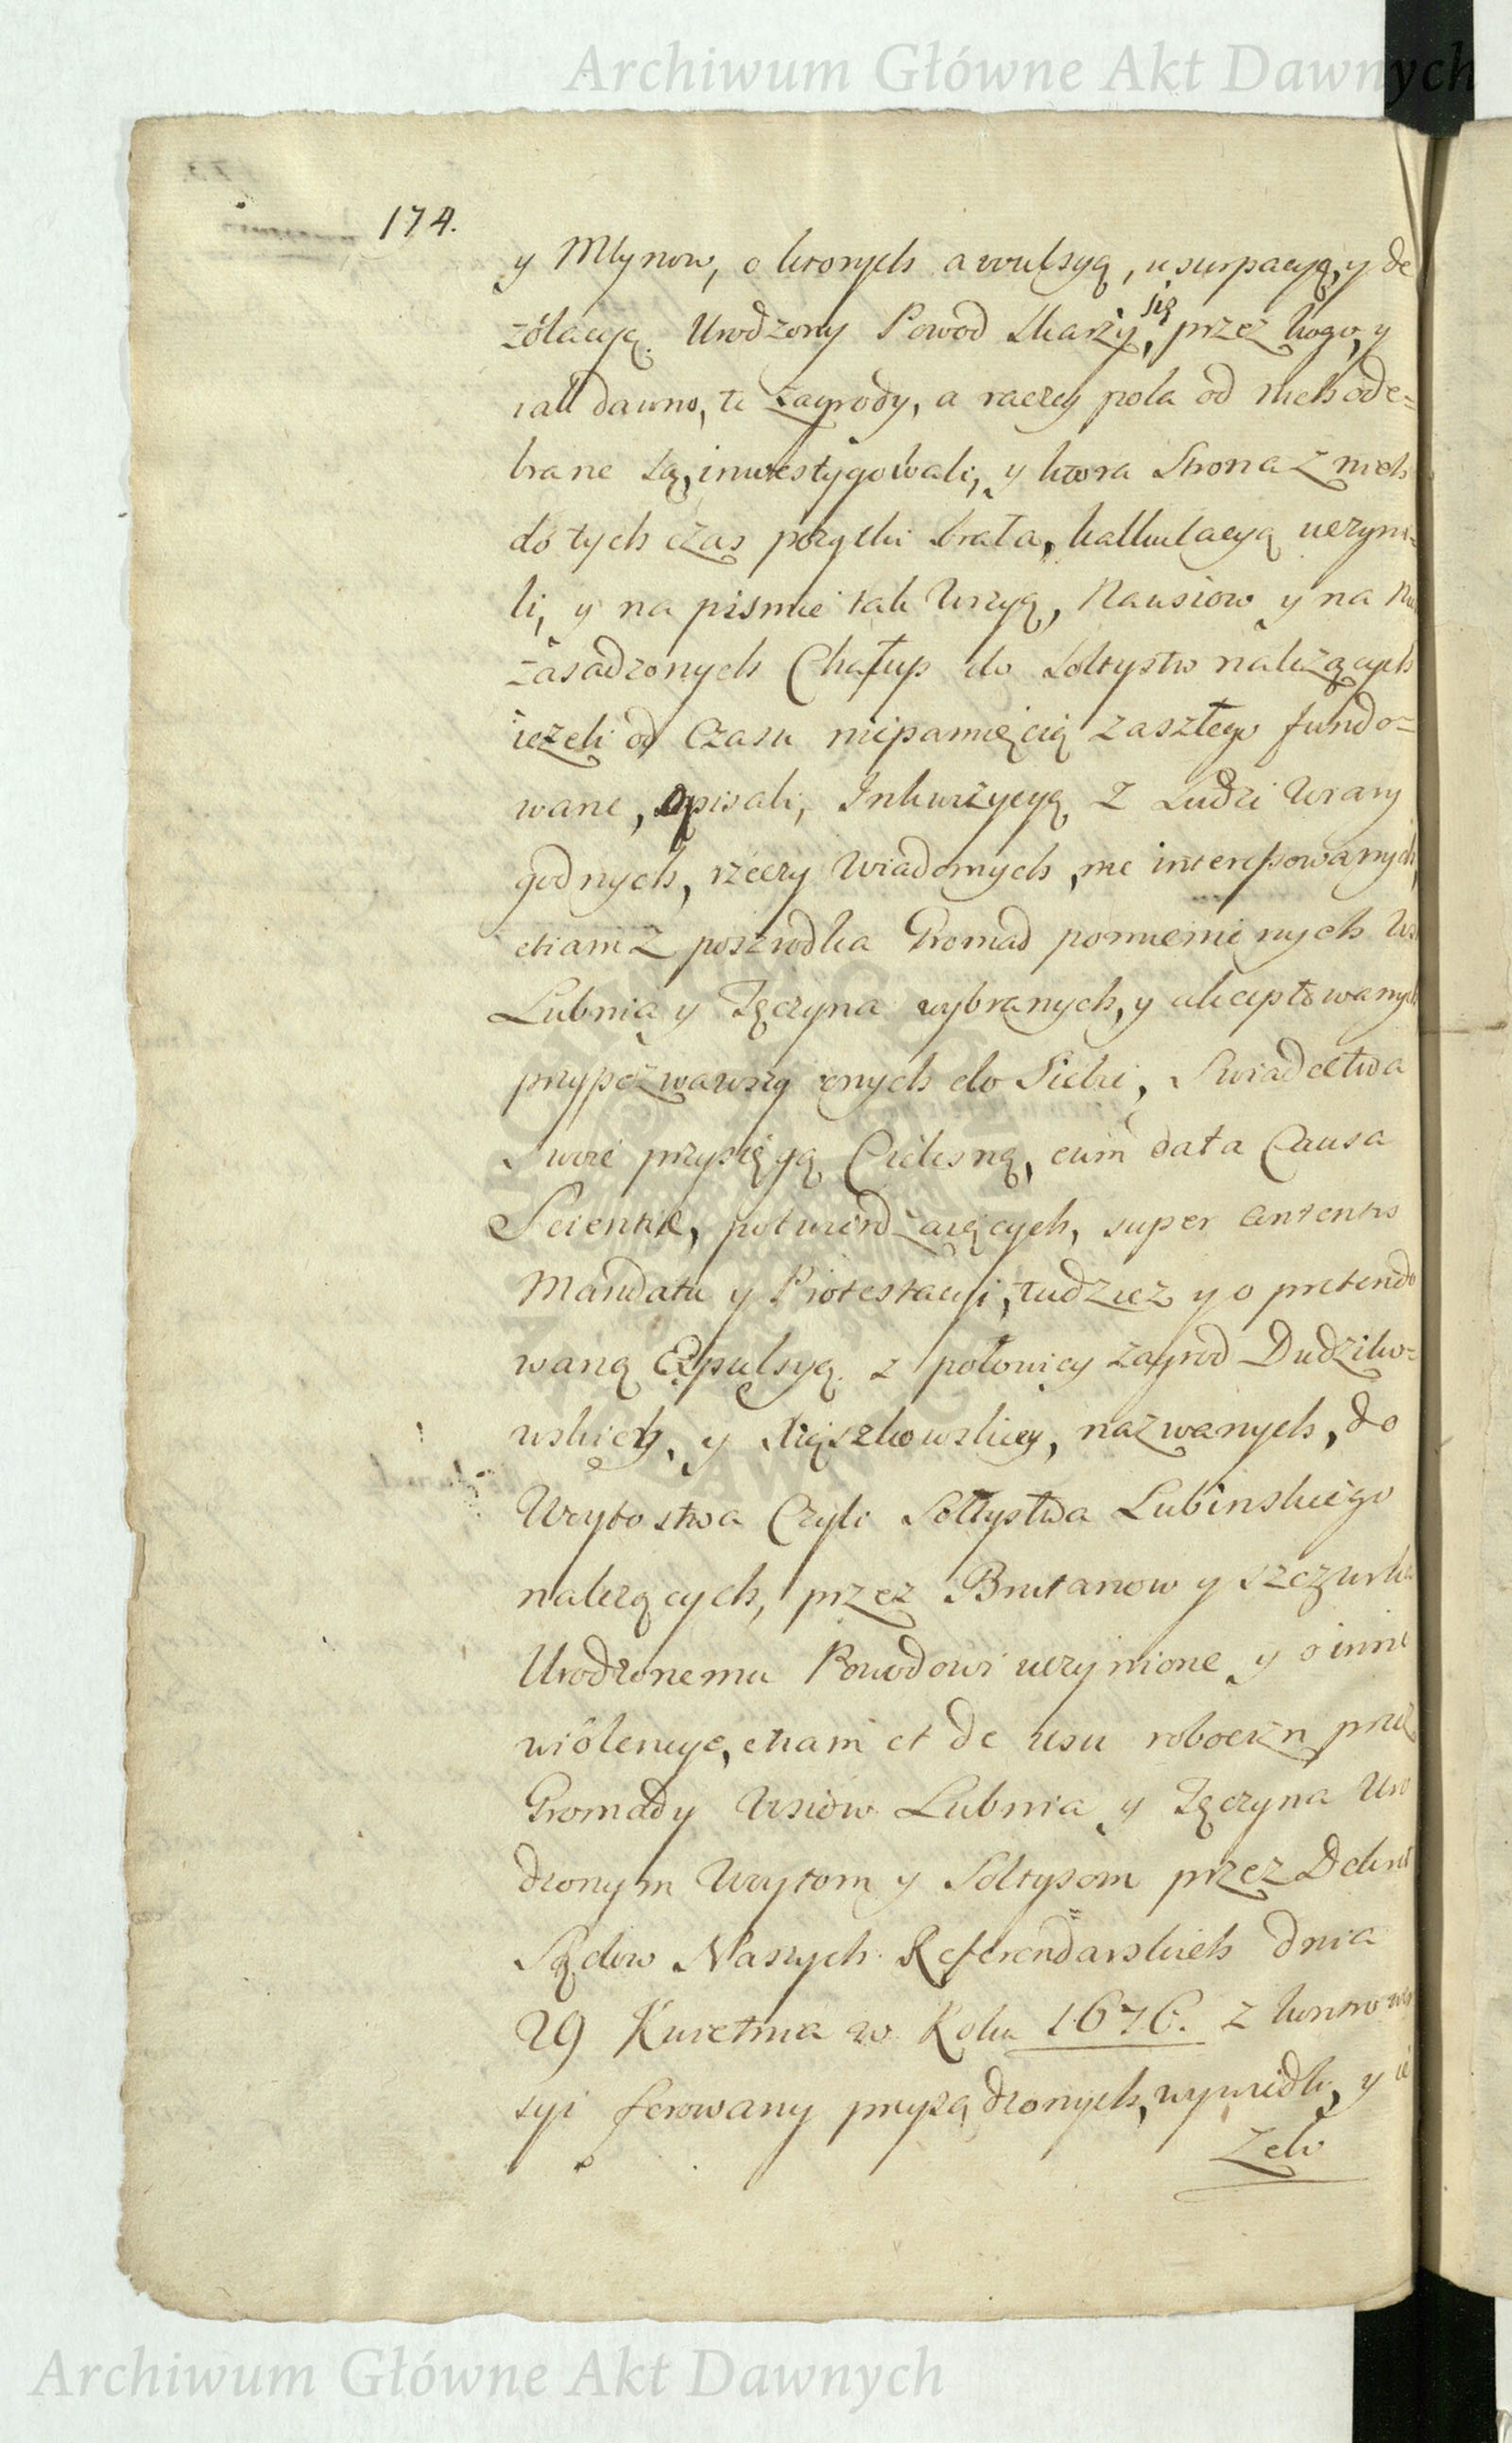 Archiwum Główne Akt Dawnych
174.
y Młynow, o ktorych awulsyą, usurpacyą, y de
zolacyą. Urodzony Powod Skarzy się, przez kogo, y
iak dawno, te zagrody, a raczey pola od nich ode=
brane są, inwestygowali, y ktora Strona z nich
do tych czas pozytki brała, kalkulacyą uczyni=
li, y na pismie tak Wszyą, Nawsiow y na
zasadzonych Chałup do Sołtystw nalezących
iezeli od Czasu niepamięcią zaszłego fundo=
wane, opisali, Inkwizycyą z Ludzi Wiary
godnych, rzeczy Wiadomych, nie interessowanych,
etiam z poszrodka Gromad pomienionych Wsi
Lubnia y Tęczyna wybranych, y akceptowanych
przypozwawszy onych do Siebie, Swiadectwa
Swoie przysięgą Cielesną, cum data Causa
Scientiæ, potwierdzaiących, super contentis
Mandatu y Protestacyi, tudziez y o pretendo
waną Expulsyą. z połowicy zagrod Dudzikow=
wskich, y Xiąszkowskiey, nazwanych, do
Woytostwa Czyli Sołtystwa Lubinskiego
nalezących, przez Brutanow y Szczurka
Urodzonemu Powodowi uczynione y o inne
wiolencye, etiam et de usu roboczn przez
Gromady Wsiow Lubnia y Tęczyna Uro
dzonym Woytom y Sołtysom przez Dekret
Sądow Naszych Referendarskich dnia
29 Kwietnia w Roku 1676. z kontrower
syi ferowany przysądzonych, wywiedli, y ie
Zeli
Archiwum Główne Akt Dawnych